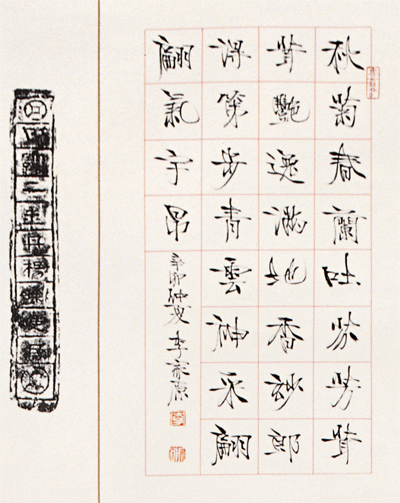 秋菊春蘭吐芬芳菁
菁艷逸滿地香妙郎
得策步青雲神采翩
翩氣宇昂
辛卯仲夏李家原